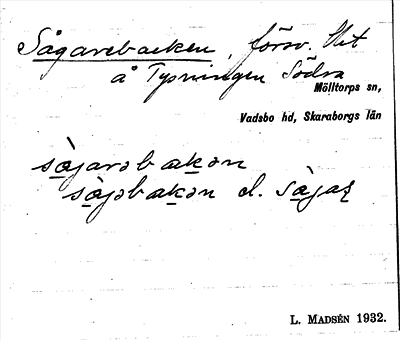 Sågarebacken, försv. Ut
å Typningen Södra
Mölltorps sn,
Vadsbo hd, Skaraborgs län
sàjarəbakən
sàjəbakən el. sàjaʀ
L. MADSÉN 1932.